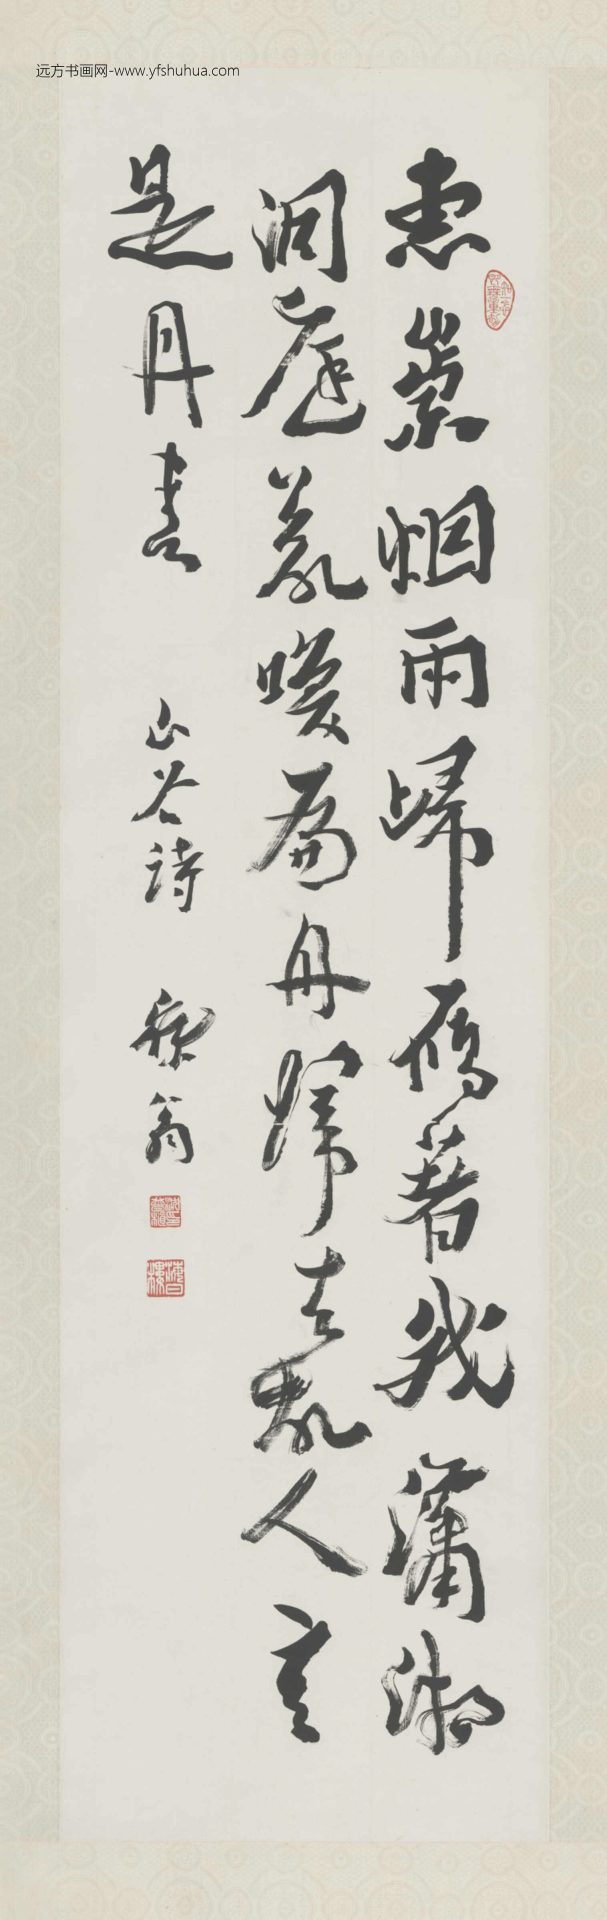 远方书画网-www.yfshuhua.com
惠崇烟雨歸雁著我瀟湘
洞庭喚扁舟歸去故人言
是丹青
山谷詩 翁